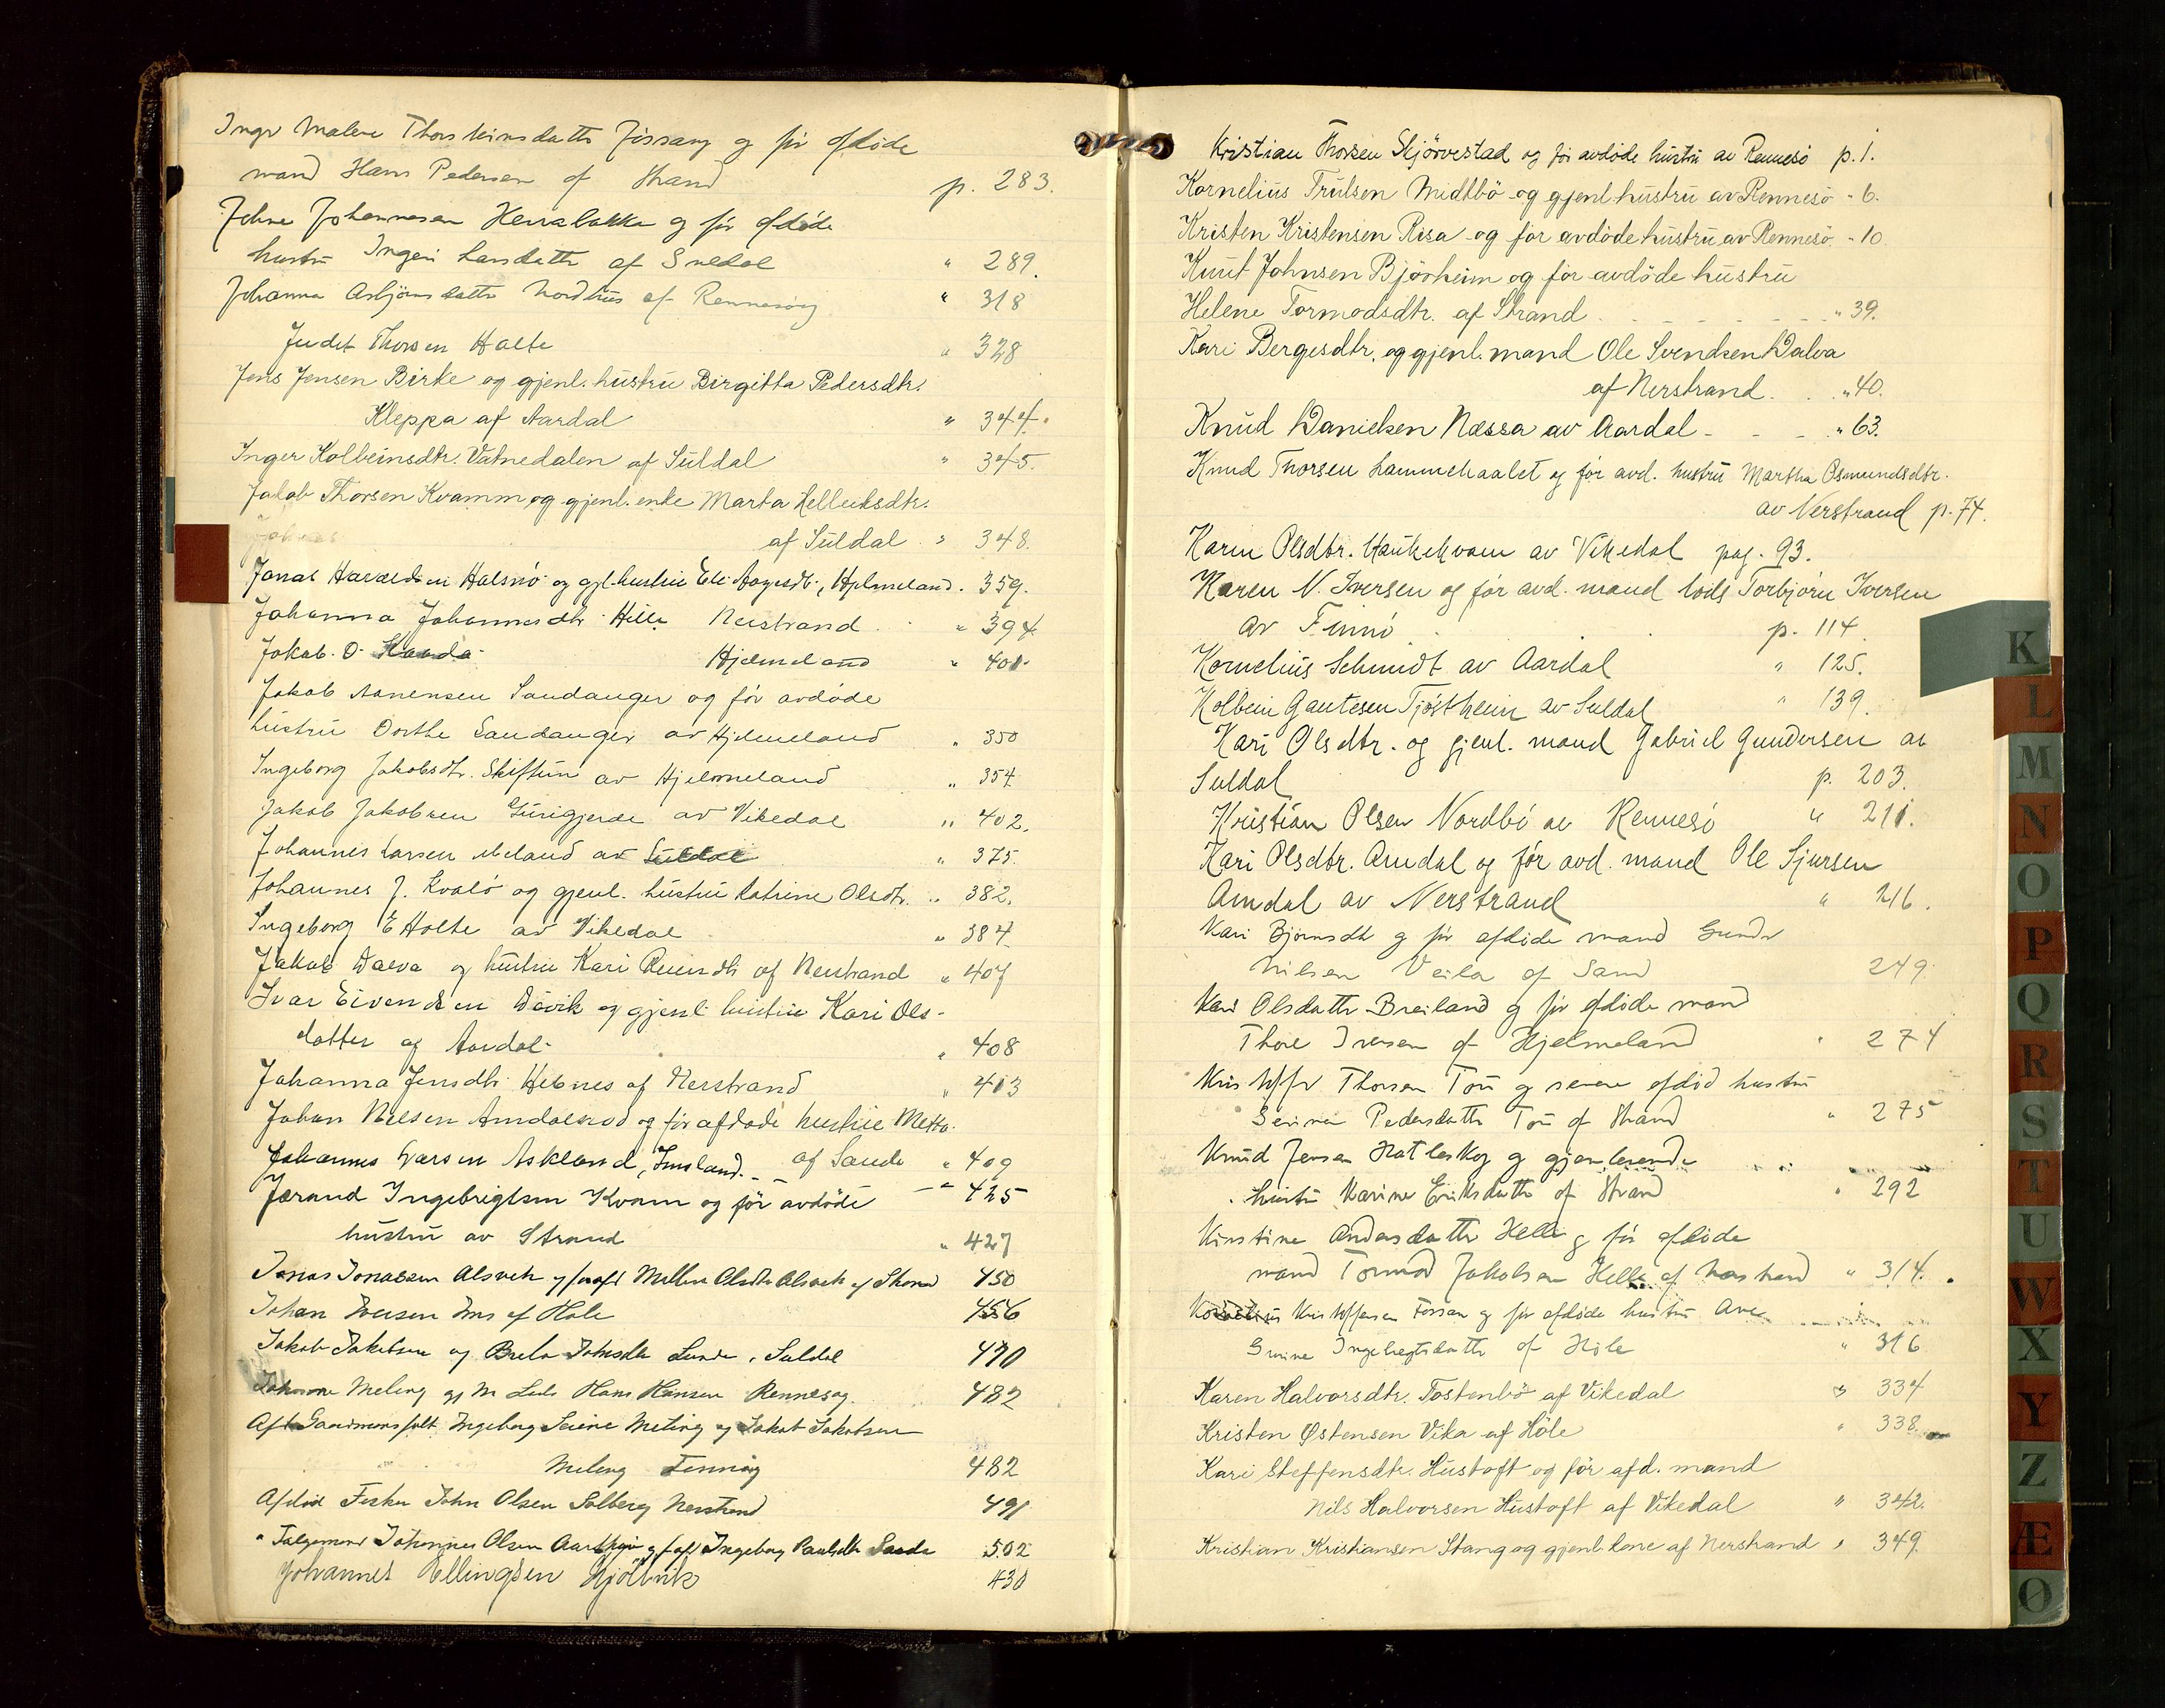 Inger Malene Thorsteinsdatter Fossang og for afdøde
mand Hans Pedersen af Strand p. 283.
Johne Johannesen og for afdøde
hustru Ingeri Larsdatter af Suldal " 289.
Johanna Asbjørnsdatter Nordhus af Rennesøy " 318
Judit Thorsen Halte " 328
Jens Jensen Birke og gjenl. hustru Birgitta Pedersdtr.
Kleppa af Aardal " 344.
Inger Kolbeinsdtr. Vatnedalen af Suldal " 345.
Jakob Thorsen Kvamm og gjenl. enke Marta Helleiksdtr.
af Suldal " 348.
Jonas Haraldsen Halsnø og gjl. hustru Eli Aagesdt., Hjelmeland. 359.
Johanna Johannesdtr. Hille Nerstrand " 394
Jakob O. Sanda Hjelmeland " 401
Jakob Aanensen Sandanger og for avdøde
hustru Dorthe Sandanger av Hjelmeland " 350
Ingeborg Jakobsdtr. Skiftun av Hjelmeland " 354.
Jakob Jakobsen Gunigjerde av Vikedal " 402.
Johannes Larsen Meland av Suldal " 375.
Johannes J. Kvalø og gjenl. hustru Katrine Olsdtr. " 382.
Ingeborg E Holte av Vikedal " 384.
Jakob Dalva og hustru Kari af Nerstrand " 407
Ivar Eivendsen Døvik og gjenl. hustru Kari Ols-
datter af Aardal " 408
Johanna Jensdtr. Hebnes af Nerstrand " 413
Johan Nilsen Amdalsrød og for afdøde hustru Metta
Johannes Larsen Askland, Imsland. af Saude " 409
Jørand Ingebrigtsen Kvam og før avdøde — " 425
hustru av Strand " 427
Jonas Jonassen Alsvik og for afd Malline Olsdtr Alsvik af Strand 450
Johan Iversen Ims af Høle 456
Jakob Jakobsen og Brita Johnsdtr Lunde, Suldal 470
Johanne Meling gj m Lods Hans Hansen Rennesøy. 482
Afd Gaardmansfolk Ingeborg Serine Meling og Jakob Jakobsen
Meling Finnøy 482
Afdød Fisker John Olsen Solberg Nerstrand 491
" Følgemand Johannes Olsen og f afd Ingeborg Paulsdtr Sauda 502
Johannes Ellingsen Kjølvik 430
Kristian Thorsen Skjørvestad og for avdøde hustru av Rennesø p. 1.
Kornelius Trulsen Midtbö og gjenl. hustru av Rennesö " 6.
Kristen Kristensen Risa og for avdøde hustru av Rennesö. " 10
Knut Johnsen Bjørheim og for avdøde hustru
Helene Tormodsdtr. af Strand " 39.
Kari Bergesdtr. og gjenl. mand Ole Svendsen Dalva
af Nerstrand. " 40.
Knud Danielsen Næssa av Aardal " 63.
Knud Thorsen Lammehaalet og før avd. hustru Martha Osmundsdtr.
av Nerstrand p. 74.
Karen Olsdtr. Haukekvam av Vikedal pag. 93.
Karen N. Iversen og før avd. mand lods Torbjørn Iversen
av Finnø p. 114
Kornelius Schmidt av Aardal " 125.
Kolbein Gautesen Tjøstheim av Suldal " 139.
Kari Olsdtr. og gjenl. mand Gabriel Gundersen av
Suldal p. 203.
Kristian Olsen Nordbö av Rennesö " 211.
Kari Olsdtr. Amdal og før avd. mand Ole Sjursen
Amdal av Nerstrand " 216.
Kari Bjørnsdtr og for afdøde mand Gunder
Nilsen Veila af Sand 249
Kari Olsdatter Breiland og for afdøde mand
Thore Iversen af Hjelmeland " 274
Kristoffer Thorsen Tou og senere afdød hustru
Serine Pedersdatter Tou af Strand " 275
Knud Jensen Hatleskog og gjenlevende
hustru Karine Eriksdatter af Strand " 292
Kirstine Andersdatter Helle og for afdøde
mand Tormod Jakobsen Helle af Nerstrand " 314.
Kornelius Kristoffersen Fossan og for afdøde hustru Ane
Serine Ingebregtsdatter af Høle " 316
Karen Halvorsdtr. Tostenbö af Vikedal " 334
Kristen Østensen Vika af Höle " 338
Kari Steffensdtr. Hustoft og för afd. mand
Nils Halvorsen Hustoft af Vikedal " 342.
Kristian Kristiansen Stang og gjenl. kone af Nerstrand " 349.
K
L
M
N
O
P
Q
R
S
T
U
W
X
Y
Z
Æ
Ø